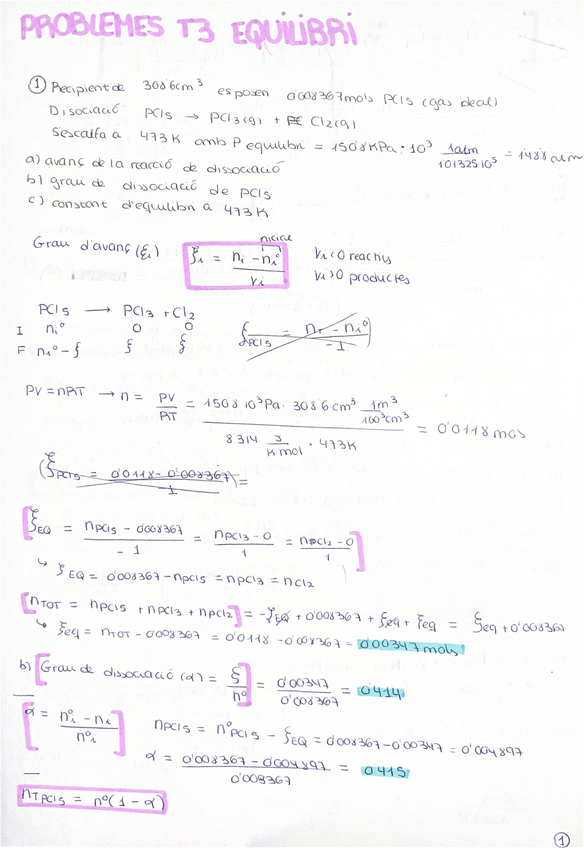 PROBLEMES T3 EQUILIBRI
① Recipient de 308'6 cm³ es posen 0'008367 mols PCl5 (gas ideal)
Disociació PCl5 → PCl3(g) + Cl2(g)
S'escalfa a 473 K amb P equilibri = 150'8 KPa · 10³ 1atm / 101325 10⁵ = 1'488 atm
a) avanç de la reacció de dissociació
b) grau de dissociació de PCl5
c) constant d'equilibri a 473 K
inicial
Grau d'avanç (ξi) ξi = ni - ni° / νi νi<0 reactius
νi>0 productes
PCl5 → PCl3 + Cl2
I ni° 0 0 ξPCl5 = nT - ni° / -1
F ni° - ξ ξ ξ
PV = nRT → n = PV / RT = 150'8 10³ Pa · 308'6 cm³ 1m³ / 100³cm³ / 8'314 J / K mol · 473K = 0'0118 mols
(ξPCl5 = 0'0118 - 0'008367 / -1) =
ξEQ = nPCl5 - 0'008367 / -1 = nPCl3 - 0 / 1 = nPCl2 - 0 / 1
↳ ξEQ = 0'008367 - nPCl5 = nPCl3 = nCl2
nTOT = nPCl5 + nPCl3 + nPCl2 = -ξEQ + 0'008367 + ξeq + ξeq = ξeq + 0'008367
↳ ξeq = nTOT - 0'008367 = 0'0118 - 0'008367 = 0'00347 mols
b) Grau de dissociació (α) = ξ / n° = 0'00347 / 0'008367 = 0'414
α = ni° - ni / ni° nPCl5 = n°PCl5 - ξEQ = 0'008367 - 0'00347 = 0'004897
α = 0'008367 - 0'004897 / 0'008367 = 0'415
nT PCl5 = n°(1 - α)
①